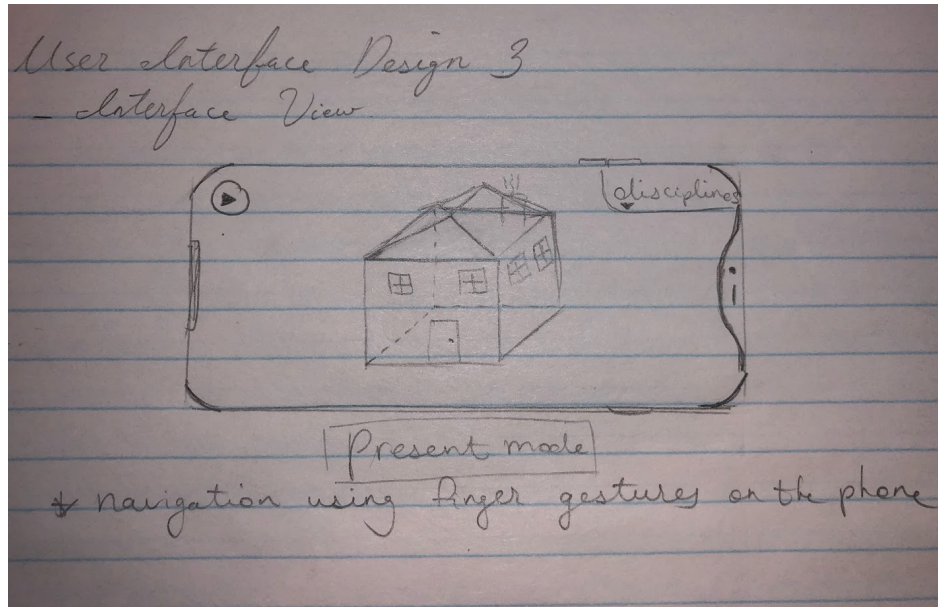 User Interface Design 3
- Interface View
disciplines
Present mode
* navigation using finger gestures on the phone